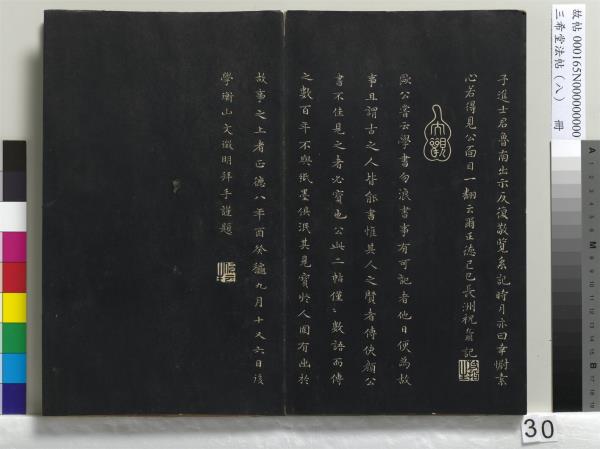 子進士君魯南出示反復歎覽系記時月亦曰幸慰素
心若得見公面目一翻云爾正德己巳長洲祝 記
大觀
歐公嘗云學書勿浪書事有可記者他日便為故
事且謂古之人皆能書惟其人之賢者傳使顏公
書不佳見之者必寶也公此二帖僅〻數語而傳
之數百年不與紙墨俱泯其見寶於人固有出於
故事之上者正德八年酉癸龝九月十又六日後
學衡山文徵明拜手謹題
故帖 000165N000000000
三希堂法帖（八） 冊
30
A
B